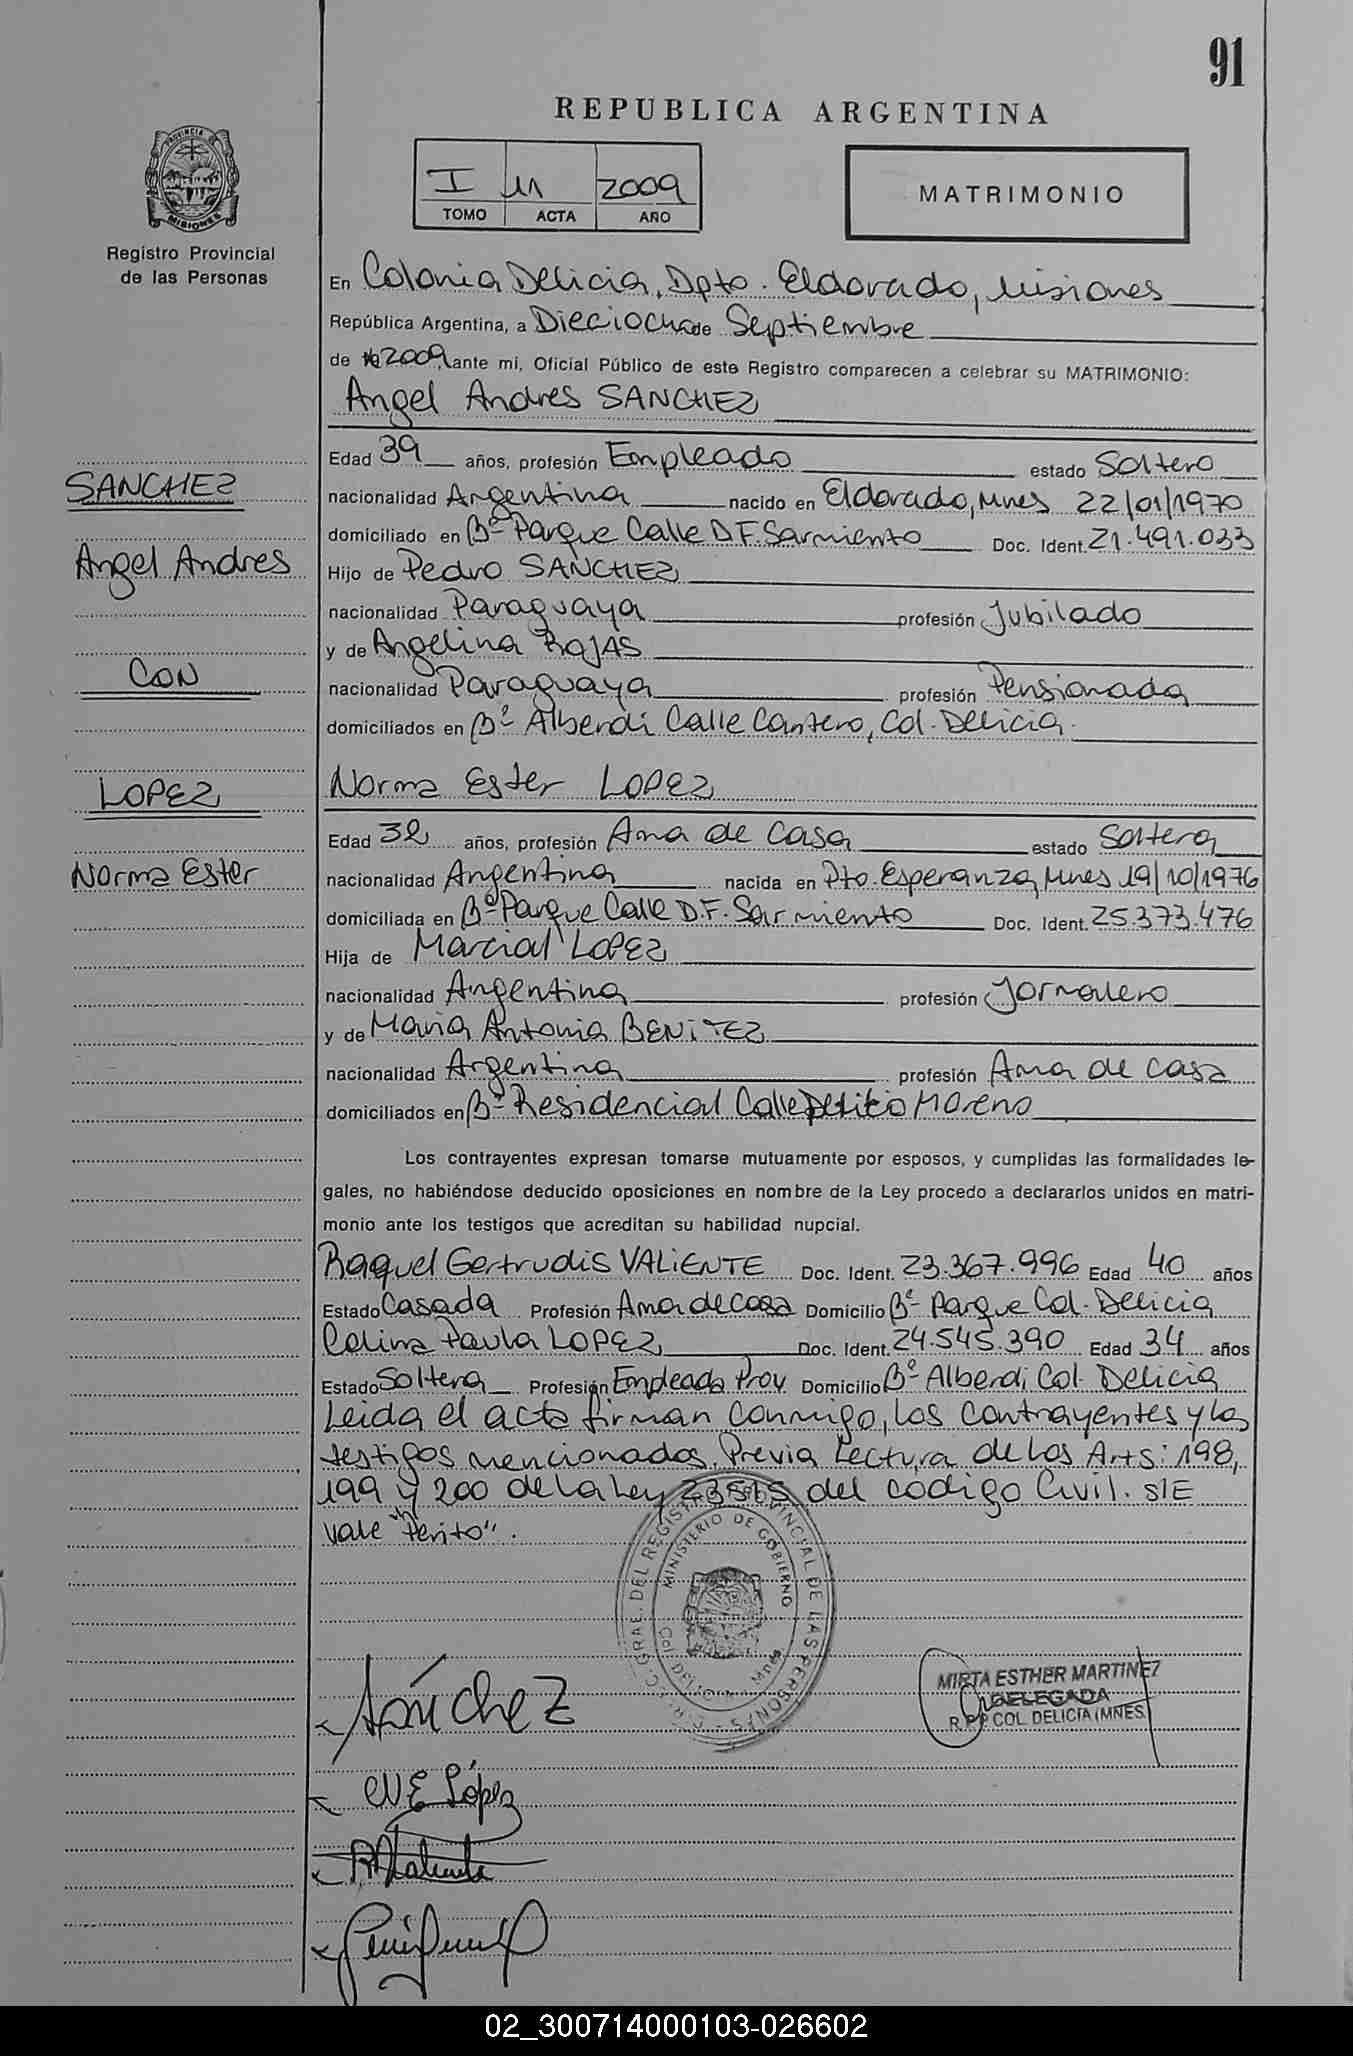 91
REPUBLICA ARGENTINA
I 2009
TOMO ACTA AÑO
MATRIMONIO
PROVINCIA DE
MISIONES
Registro Provincial
de las Personas
En Colonia Delicia, Dpto. Eldorado, Misiones
República Argentina, a Dieciocho de Septiembre
de 2009, ante mi, Oficial Público de este Registro comparecen a celebrar su MATRIMONIO:
Angel Andres SANCHEZ
Edad 39 años, profesión Empleado estado Soltero
nacionalidad Argentina nacido en Eldorado, Mnes 22/01/1970
domiciliado en Bº Parque Calle D.F. Sarmiento Doc. Ident. 21.491.033
Hijo de Pedro SANCHEZ
nacionalidad Paraguaya profesión Jubilado
y de Angelina ROJAS
nacionalidad Paraguaya profesión Pensionada
domiciliados en Bº Alberdi Calle Cantero, Col. Delicia.
SANCHEZ
Angel Andres
CON
LOPEZ
Norma Ester
Norma Ester LOPEZ
Edad 32 años, profesión Ama de casa estado Soltera
nacionalidad Argentina nacida en Pto. Esperanza, Mnes 19/10/1976
domiciliada en Bº Parque Calle D.F. Sarmiento Doc. Ident. 25.373.476
Hija de Marcial LOPEZ
nacionalidad Argentina profesión Jornalero
y de Maria Antonia BENITEZ
nacionalidad Argentina profesión Ama de casa
domiciliados en Bº Residencial Calle Perito Moreno
Los contrayentes expresan tomarse mutuamente por esposos, y cumplidas las formalidades le-
gales, no habiéndose deducido oposiciones en nombre de la Ley procedo a declararlos unidos en matri-
monio ante los testigos que acreditan su habilidad nupcial.
Raquel Gertrudis VALIENTE Doc. Ident. 23.367.996 Edad 40 años
Estado Casada Profesión Ama de casa Domicilio Bº Parque Col. Delicia
Paula LOPEZ Doc. Ident. 24.545.390 Edad 34 años
Estado Soltera Profesión Empleada Prov. Domicilio Bº Alberdi Col. Delicia
Leida el acta firman conmigo, los contrayentes y los
testigos mencionados. Previa Lectura de los Arts: 198,
199 y 200 de la Ley 23515 del código Civil. S/E
vale "Perito".
MINISTERIO DE GOBIERNO
Col. DELICIA - Mnes.
Sánchez
N E López
MIRTA ESTHER MARTINEZ
DELEGADA
R.P.P. COL. DELICIA (MNES)
02_300714000103-026602